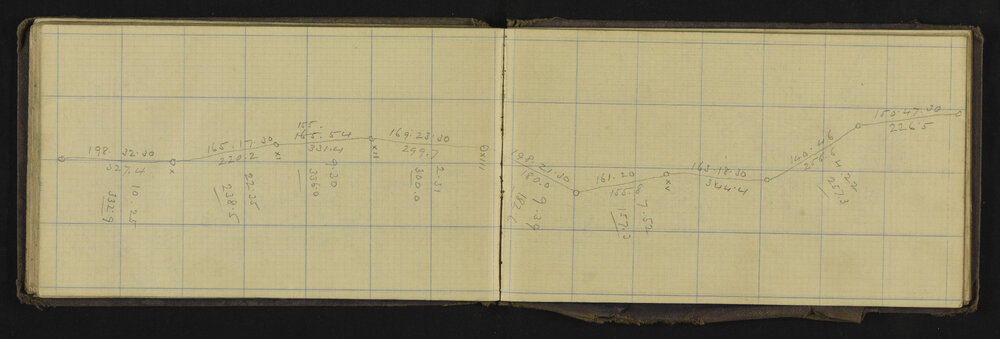 198. 32.30
327.4
X
10. 25
332.9
165.17.30
220.2
XI
22.35
238.5
155.
165.54
331.4
XII
9.30
336.0
169.23.30
299.7
XIII
2.31
300.0
198.21.30
180.0
9.39
182.6
161.20
155.8
XV
7.52
157.3
163.18.30
344.4
143.4.6
256.4
22
257.3
150.47.30
226.5